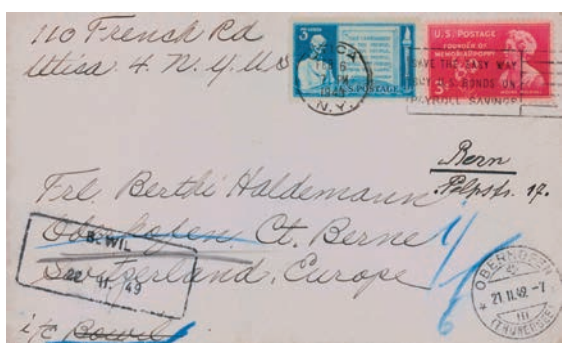 110 French Rd
Utica 4. N.Y. U.S
3
U.S. POSTAGE
UTICA
FEB 6
PM
N.Y.
U.S. POSTAGE
FOUNDER OF
MEMORIAL POPPY
3¢
SAVE THE EASY WAY
BUY U.S. BONDS ON
PAYROLL SAVINGS
Bern
Frl. Berthi Haldemann
Oberhofen, Ct. Berne
Switzerland, Europe
BOWIL
49
OBERHOFEN
21.11.49 -7
(THUNERSEE)
i/E Bowil